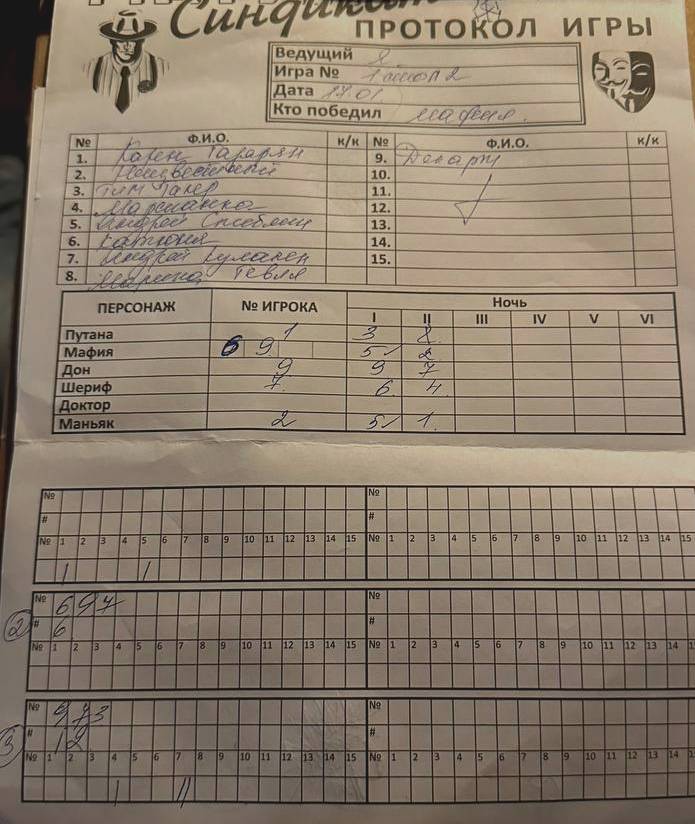 Синдикат
ПРОТОКОЛ ИГРЫ
Ведущий Я
Игра № 1 стол 2
Дата 17.01.
Кто победил мафия.
№ Ф.И.О. к/к № Ф.И.О. к/к
1. Карен 9. Декарт
2. Неизвестный 10.
3. Тим 11.
4. Марсианка 12.
5. Андрей 13.
6. Катюня 14.
7. Андрей 15.
8. Марина
ПЕРСОНАЖ № ИГРОКА Ночь
I II III IV V VI
Путана 1 3 8
Мафия 6 9 5 2
Дон 9 9 7
Шериф 7. 6 4.
Доктор
Маньяк 2 5 1.
№ №
# #
№ 1 2 3 4 5 6 7 8 9 10 11 12 13 14 15 № 1 2 3 4 5 6 7 8 9 10 11 12 13 14 15
№ 6 9 7 №
2 # 6 #
№ 1 2 3 4 5 6 7 8 9 10 11 12 13 14 15 № 1 2 3 4 5 6 7 8 9 10 11 12 13 14
№ 9 7 3 №
3 # 12 #
№ 1 2 3 4 5 6 7 8 9 10 11 12 13 14 15 № 1 2 3 4 5 6 7 8 9 10 11 12 13 14